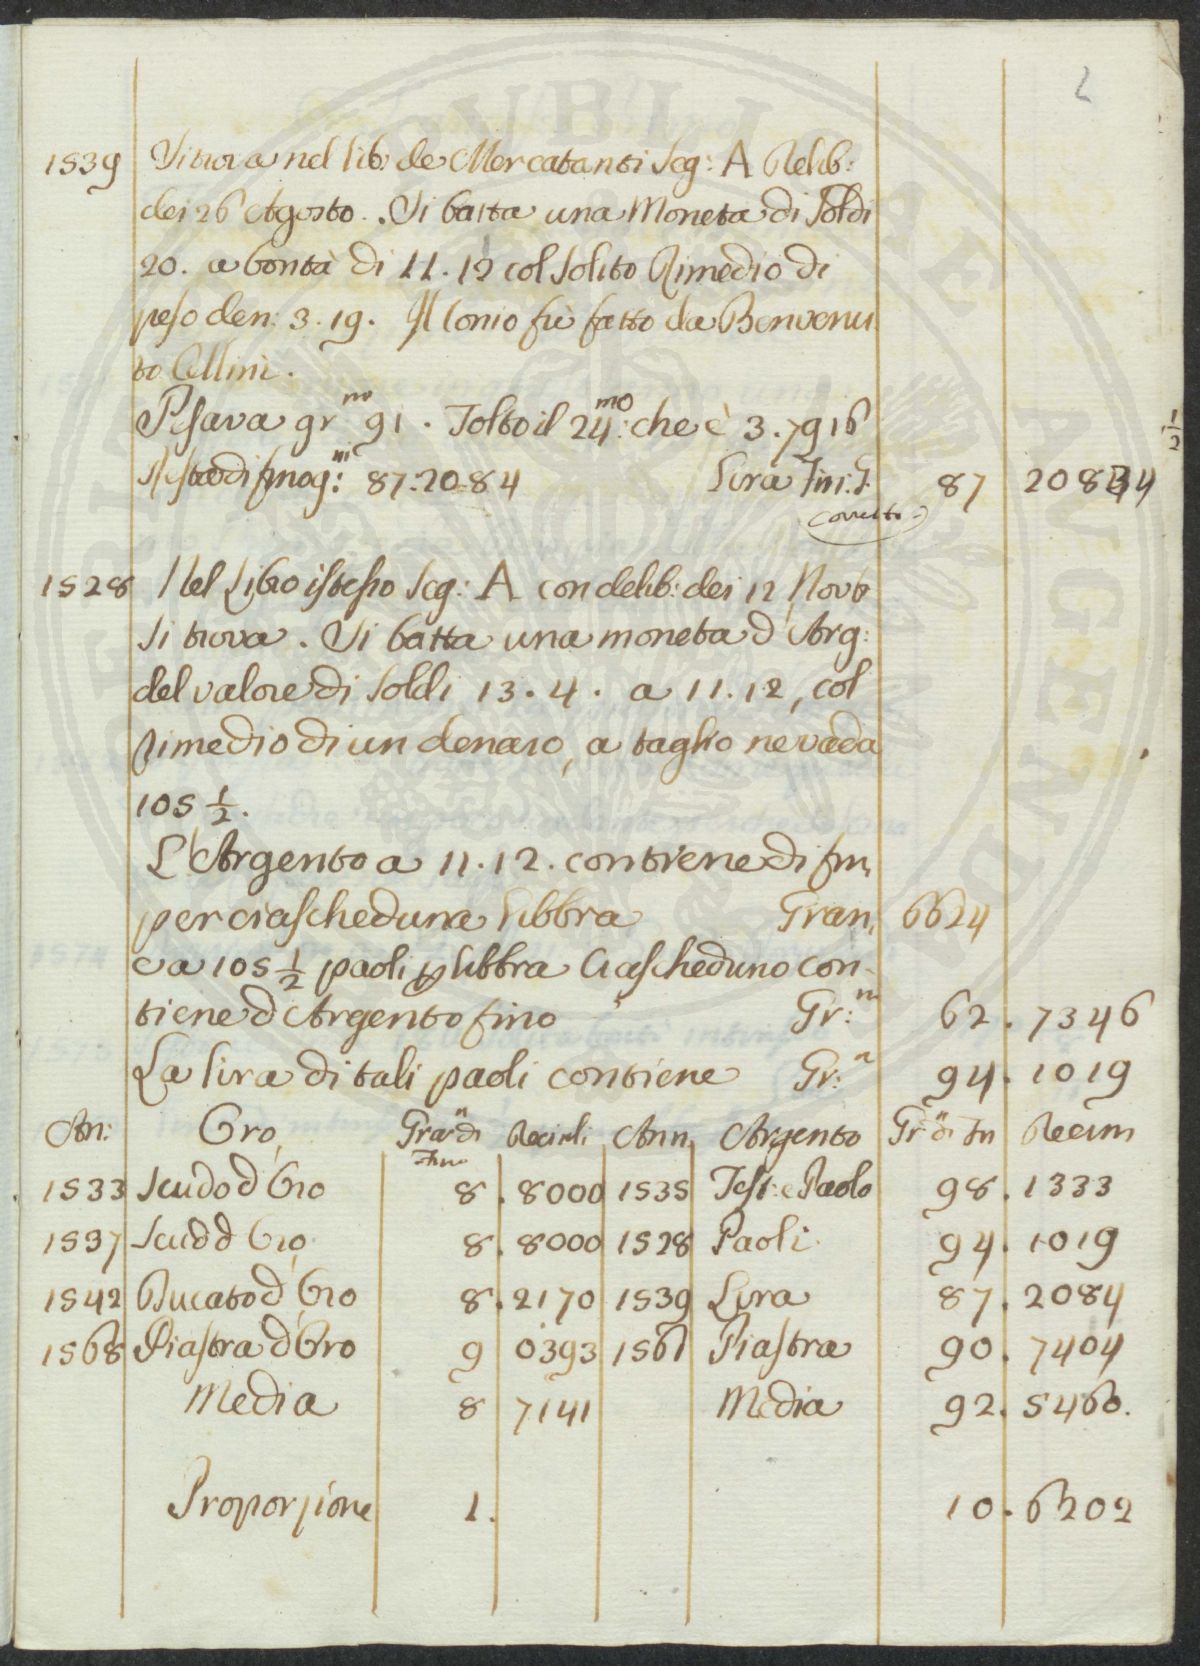 2
1539 Si trova nel lib: de Mercatanti Seg: A Delib:
dei 26 Agosto. Si batta una Moneta di Soldi
20. a bontà di 11.12 col solito Rimedio di
peso den: 3.19. Il Conio fù fatto da Benvenu
to Cellini.
Pesava gr.ni 91. Tolto il 24.mo: che è 3.7916
½
Resta di fino g:ni 87.2084 Lira Fin: 87 2084
corretto
1528 Nel Libro istesso Seg: A con delib: dei 12 Novb
si trova. Si batta una moneta d'Arg:
del valore di soldi 13.4. a 11.12, col
rimedio di un denaro, a taglio ne vada
105 ½.
L'Argento a 11.12. contiene di fin
per ciascheduna libbra Gran 6624
e a 105 ½ paoli p libbra Ciascheduno con-
tiene d'Argento fino Gr:ni 62.7346
La lira di tali paoli contiene Gr:n 94.1019
An: Oro Gra.n di Fino Decimli Ann Argento Gr.n di Fn Decim
1533 Scudo d'Oro 8.8000 1535 Test: e Paolo 98.1333
1537 Scud d'Oro 8.8000 1528 Paoli 94.1019
1542 Ducato d'Oro 8.2170 1539 Lira 87.2084
1568 Piastra d'Oro 9 0393 156 Piastra 90.7404
Media 8 7141 Media 92.5460.
Proporzione 1. 10.6202